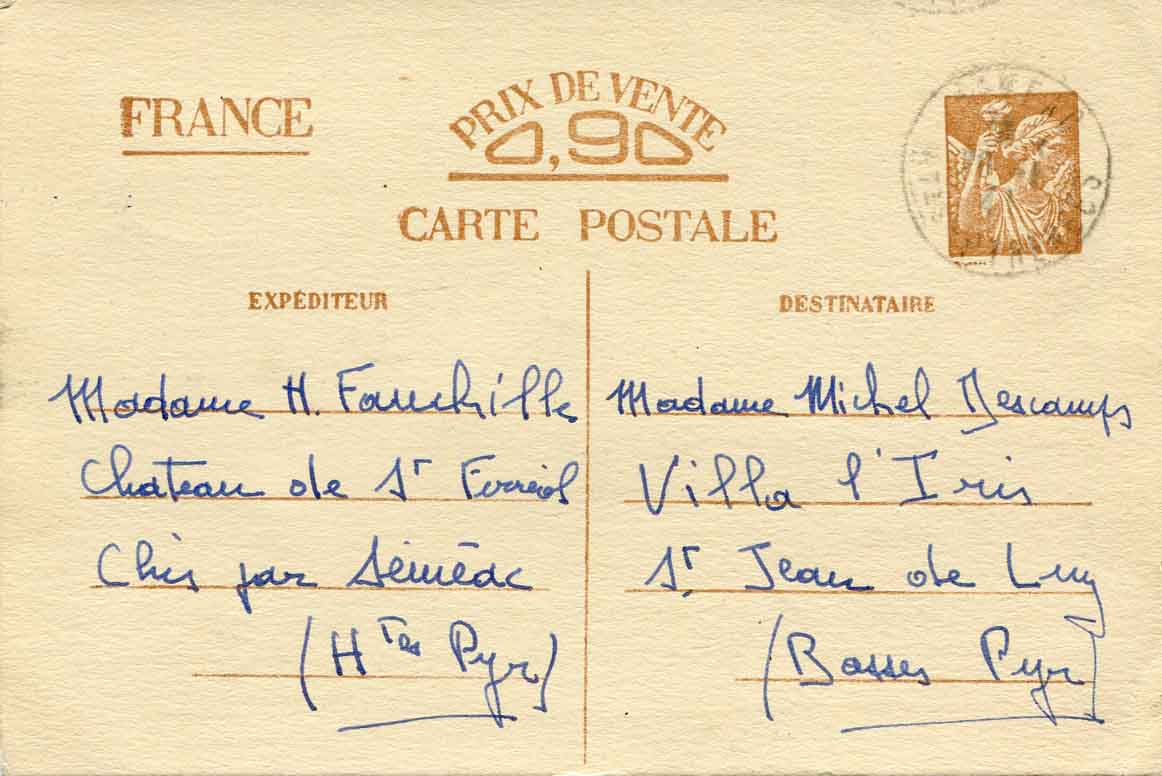 FRANCE
PRIX DE VENTE
0,90
CARTE POSTALE
EXPÉDITEUR
Madame H. Fauchille
Chateau de St Ferréol
Chis par Séméac
(Htes Pyr)
DESTINATAIRE
Madame Michel Descamps
Villa l'Iris
St Jean de Luz
(Basses Pyr)